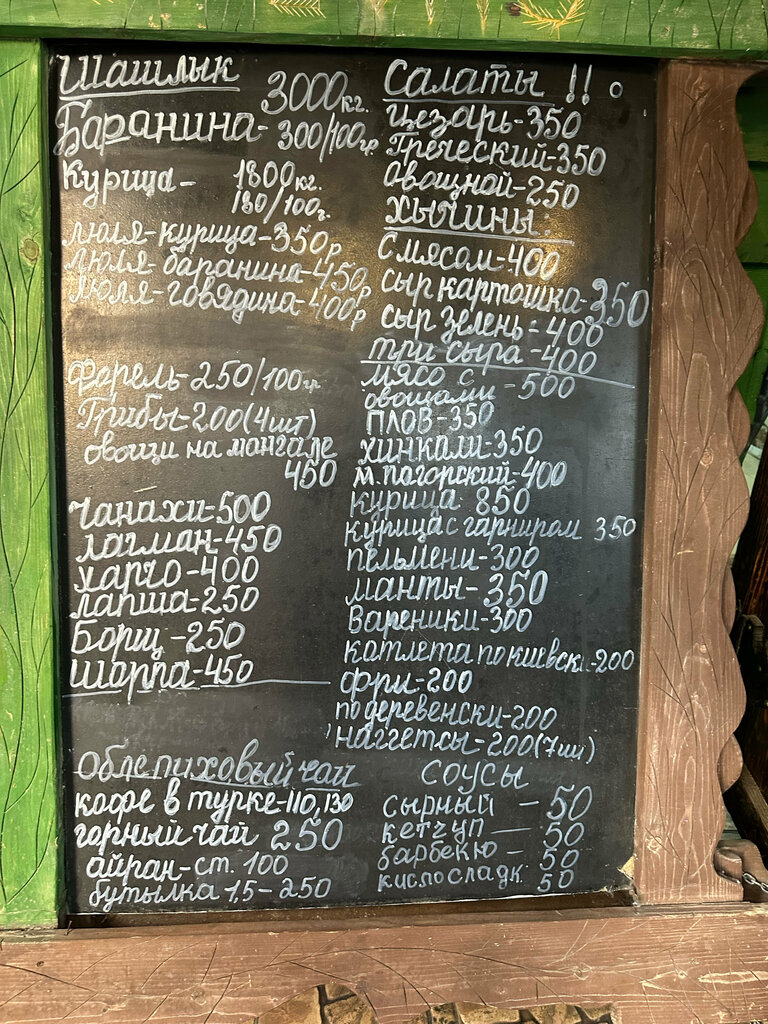 Шашлык
3000кг.
Баранина- 300/100гр.
Курица- 1800кг.
180/100г.
люля-курица-350р
люля-баранина-450р
люля-говядина-400р
Форель-250/100гр.
Грибы-200(4шт)
овощи на мангале
450
Чанахи-500
лагман-450
харчо-400
лапша-250
Борщ-250
Шорпа-450
Облепиховый чай
кофе в турке-110,130
горный чай 250
айран-ст. 100
бутылка 1,5-250
Салаты !!
Цезарь-350
Греческий-350
овощной-250
Хычины:
С мясом-400
сыр картошка-350
сыр зелень-400
три сыра-400
мясо с
овощами-500
плов-350
хинкали-350
м.погорский-400
курица 850
курица с гарниром 350
пельмени-300
манты-350
Вареники-300
котлета по киевски-200
фри-200
по деревенски-200
наггетсы-200(7шт)
Соусы
сырный-50
кетчуп-50
барбекю-50
кислосладк 50